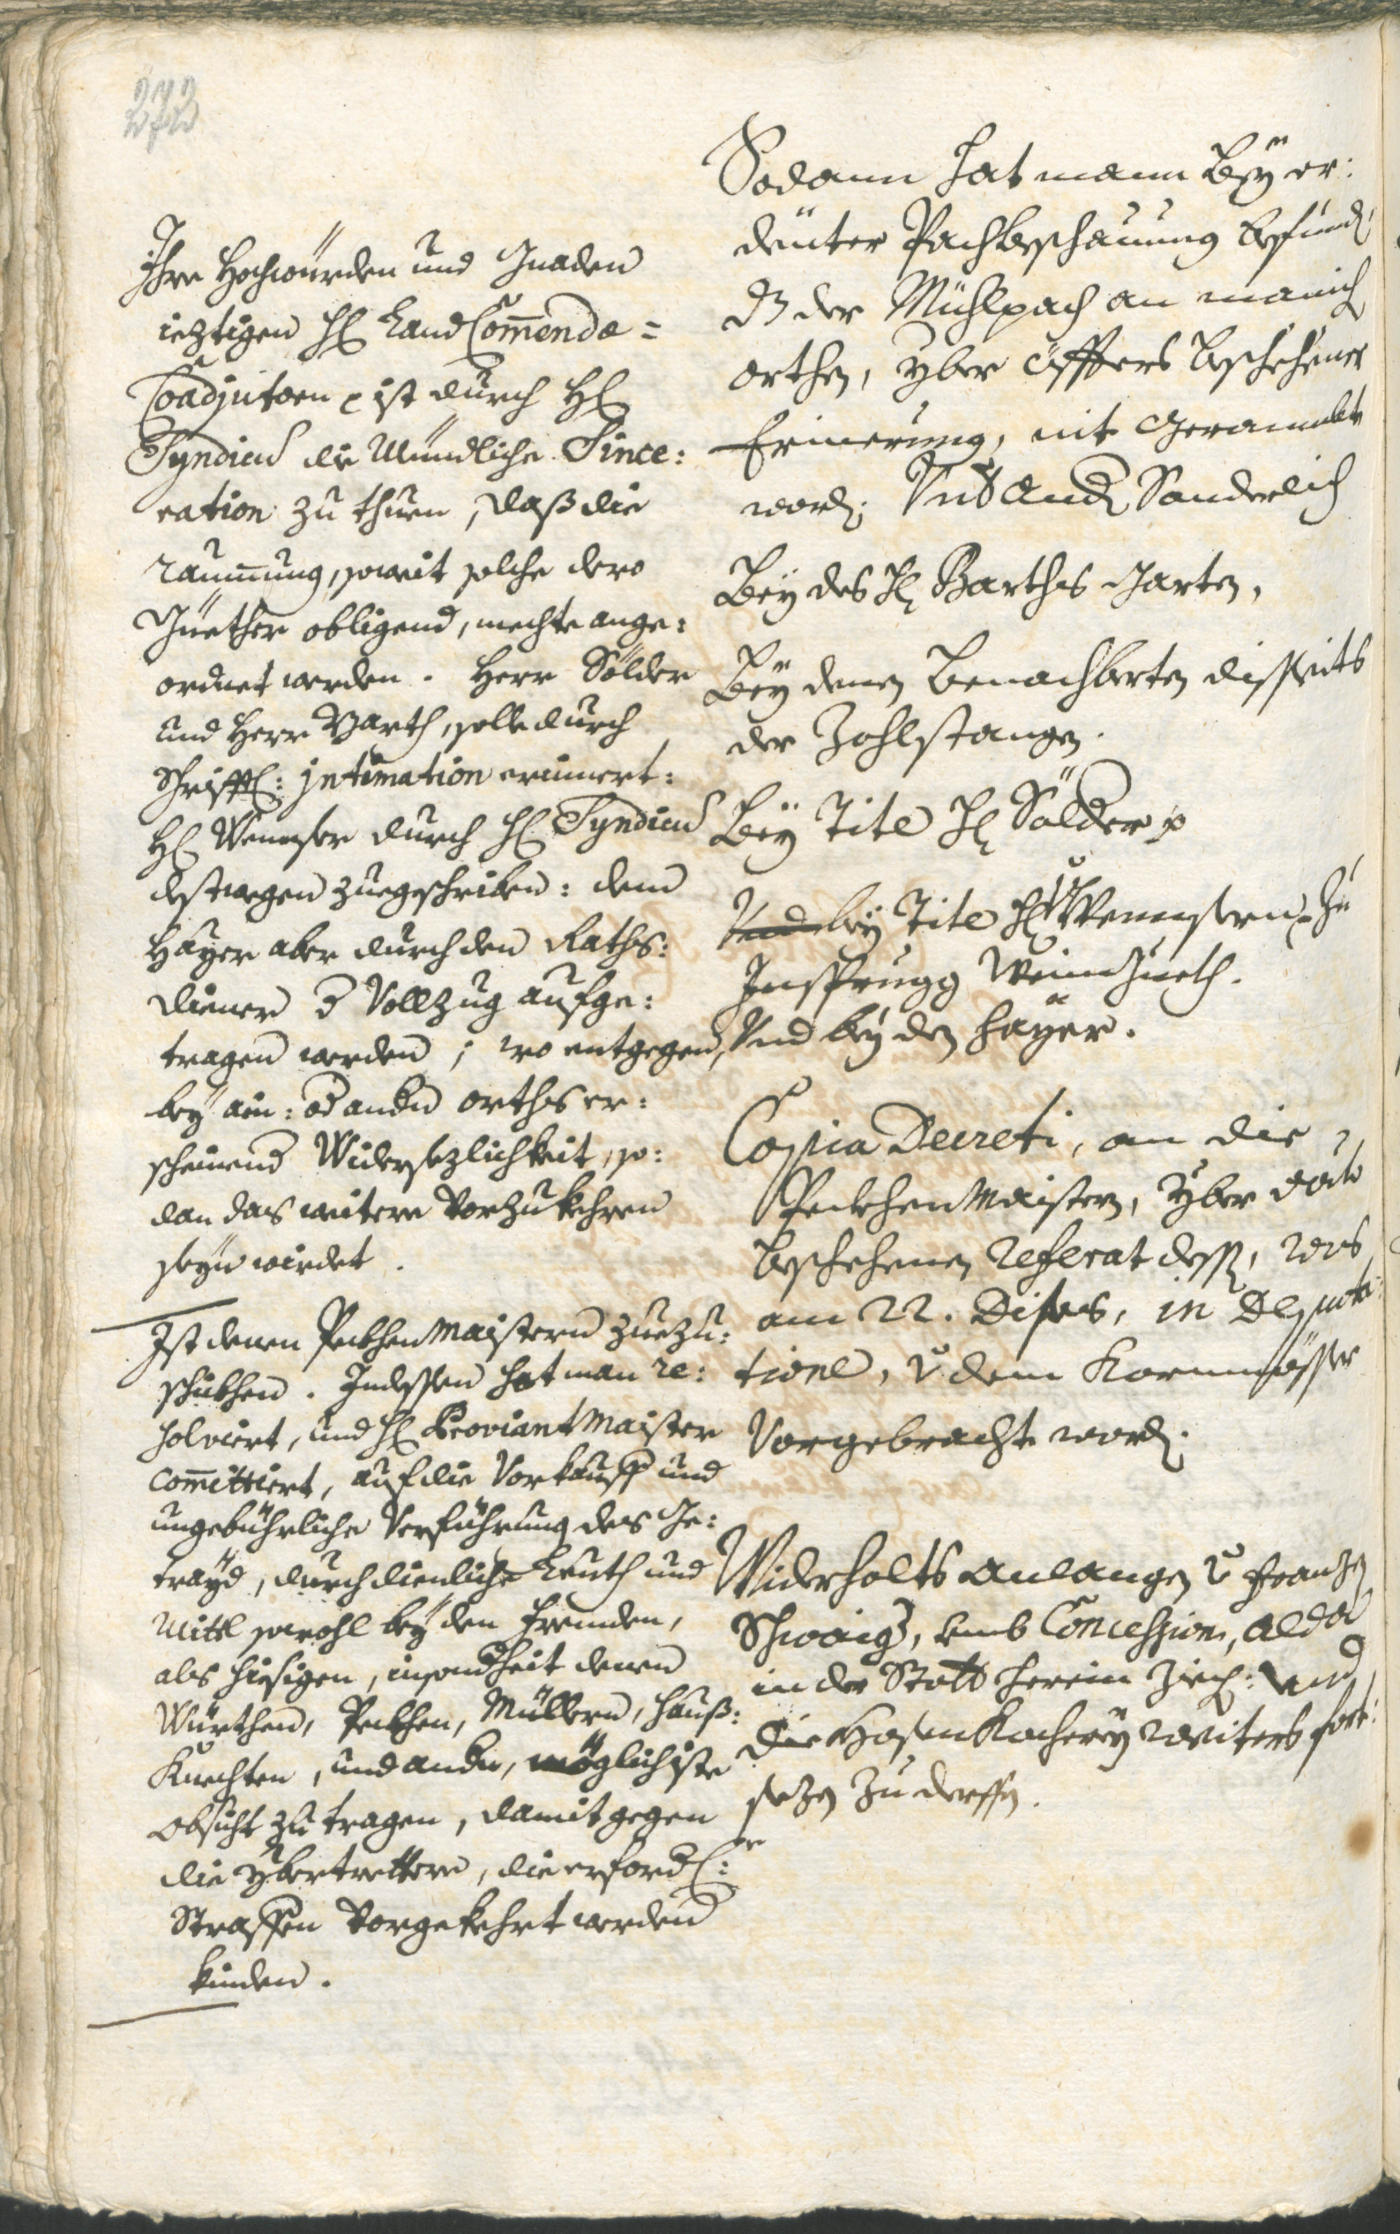 272
Ihre Hochwürden und Gnaden
ieztigen H: Land Com̄enda=
Coadjutorn p ist durch H:
Syndicus die Mündliche Since:
ration zu thuen, daß die
raumung, soweit solche dero
Güether obligend, mechte ange:
ordnet werden. Herr Sölder
und Herr Barth, solle durch
Schrifftl: jntimation erinnert:
H: Wenser durch H: Syndicus
destwegen zuegeschriben: dem
Hayer aber durch den Raths:
diener d Vollzug aufge:
tragen werden; wo entgegen,
bey ain: od andn orths er:
scheinend Widersezlichkeit, so:
dan das weitere Vorzukehren
seyn wirdet.
Ist denen Peckhen Maistern zuezu:
schikhen. Indessen hat man re:
solviert, und H: Proviant Maister
com̄ittiert, auf die Vorkauff und
ungebührliche Verführung des Ge:
trayd, durch dienliche Leuth und
Mitl sowohl bey den Fremden,
als hiesigen, insondheit denen
Würthen, Peckhen, Müllern, Hauß:
Knechten, und andn, möglichiste
obsicht zu tragen, damit gegen
die ybertrettere, die erfordl:
Straffen Vorgekehrt werden
künden.
Sodann hat mann bey er:
deuter Pachbeschauung befund
dz der Mühlpach an manich
orthen, yber öffters beschehene
Erinerung, nit geraumbt
word; Und Sonderlich
Bey des H: Barths Garten,
Bey denen Benachberten disseits
der Zohlstangen.
Bey Titl H: Sölder p
Und bey Titl H: v Wensern zu
Insprugg Weinguetl.
Und bey den Hayer.
Copia Decreti, an die
Peckhen Maistern, yber dato
beschehenen referat dess, was
am 22. Dises, in Deputa
tione, v dem Kornmösser
Vorgebracht word.
Widerholts anlangen v Franzen
Schwaigl, umb Concession, alda
in der Statt herein Zieh: und
die Hosen weiters fort:
sezen zu derffen.